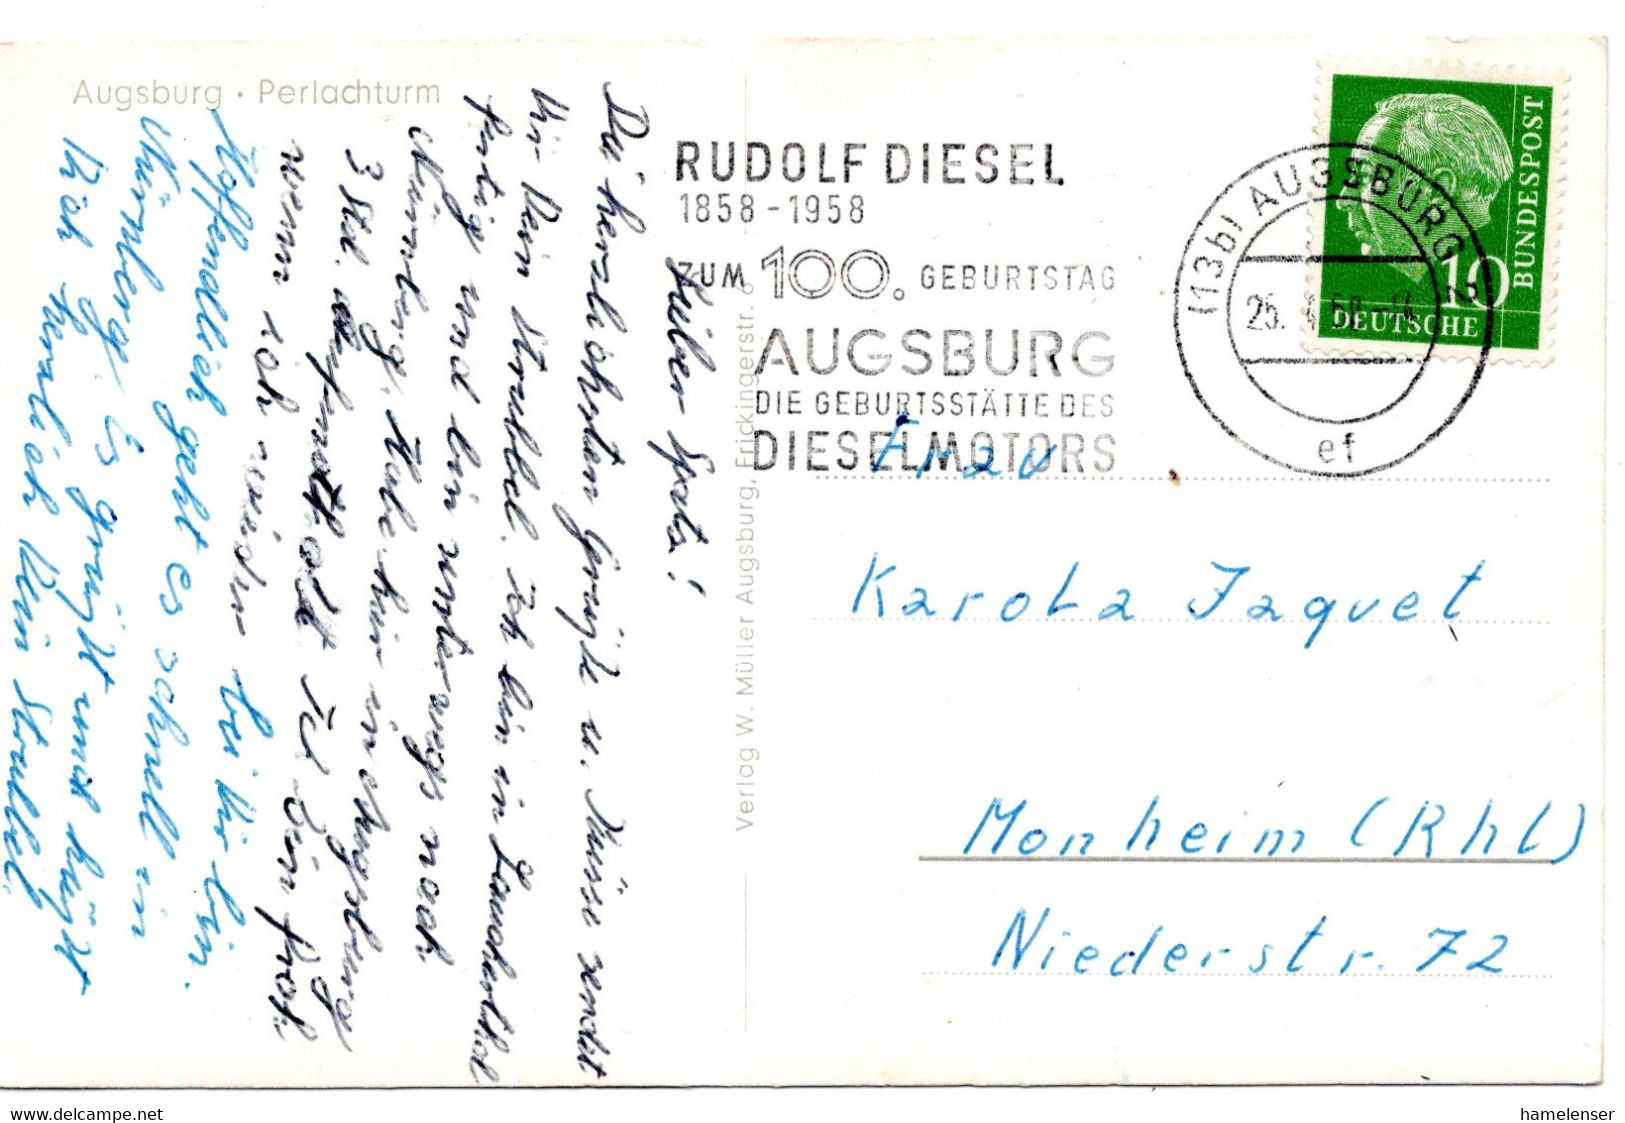 Augsburg · Perlachturm
RUDOLF DIESEL
1858-1958
ZUM 100. GEBURTSTAG
AUGSBURG
DIE GEBURTSSTÄTTE DES
DIESELMOTORS
(13b) AUGSBURG 2
25.
ef
10
DEUTSCHE
BUNDESPOST
Verlag W. Müller Augsburg, Frickingerstr.
Lieber Spatz!
Die herzlichsten Grüße u. Küsse sendet
Dir Dein Strubbel. Ich bin in
fertig und bin unterwegs nach
Nürnberg. Habe hier in Augsburg
3 Std. Aufenthalt
wenn ich wieder bei Dir bin.
Hoffendlich geht es schnell in
Nürnberg. Es grüßt und küßt
Dich herzlich Dein Strubbel
Frau
Karola Jaquet
Monheim (Rhl)
Niederstr. 72
www.delcampe.net
hamelenser